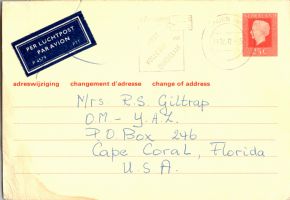 PER LUCHTPOST
PAR AVION
NEDERLAND
25c
adreswijziging changement d'adresse change of address
Mrs. R.S. Giltrap
OM - Y.A.L.
P.O. Box 246
Cape Coral, Florida
U.S.A.